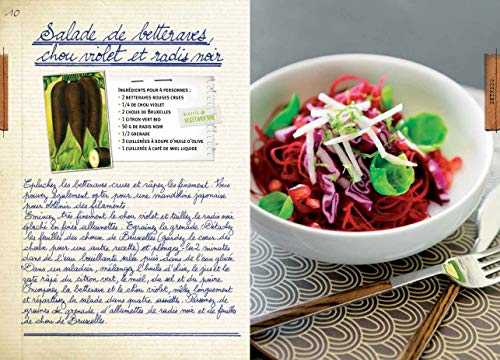 10
Salade de betteraves,
chou violet et radis noir
Ingrédients pour 4 personnes :
• 2 betteraves rouges crues
• 1/4 de chou violet
• 2 choux de Bruxelles
• 1 citron vert bio
• 50 g de radis noir
• 1/2 grenade
• 3 cuillerées à soupe d'huile d'olive
• 1 cuillerée à café de miel liquide
Epluchez les betteraves crues et râpez-les finement. Vous
pouvez également opter pour une mandoline japonaise
pour obtenir des filaments.
Émincez très finement le chou violet et taillez le radis noir
épluché en fines allumettes. Egrainez la grenade. Détachez
les feuilles des choux de Bruxelles (gardez le cœur des
choux pour une autre recette) et plongez-les 2 minutes
dans de l'eau bouillante salée puis dans de l'eau glacée.
Dans un saladier, mélangez l'huile d'olive, le jus et le
zeste râpé du citron vert, le miel, du sel et du poivre.
Incorporez la betterave et le chou violet, mêlez longuement
et répartissez la salade dans quatre assiettes. Parsemez de
graines de grenade, d'allumettes de radis noir et de feuilles
de chou de Bruxelles.